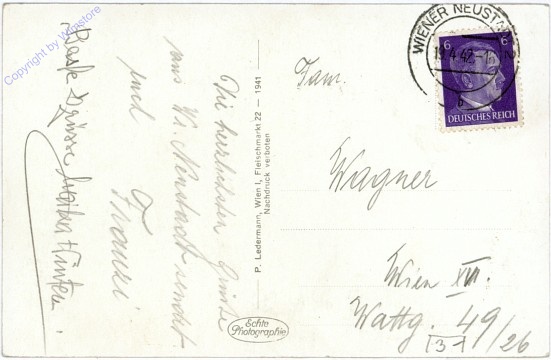 Copyright by Wienstore
Die herzlichsten Grüsse
aus Wr. Neustadt sendet
und
Beste Grüsse
P. Ledermann, Wien I, Fleischmarkt 22 — 1941
Nachdruck verboten
Echte
Photographie
WIENER NEUSTADT
6 6
DEUTSCHES REICH
Fam.
Wagner
Wien XVI.
Wattg. 49/26